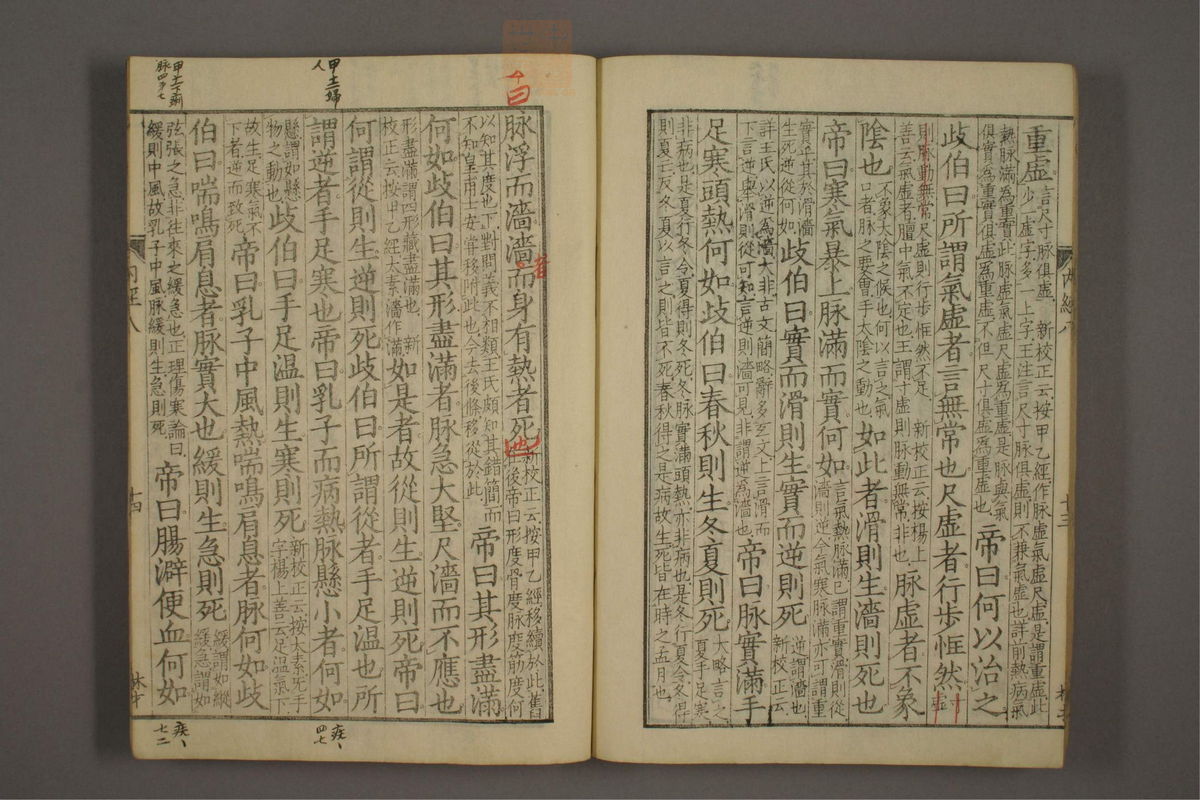 重虛
言尺寸脉俱虛 新校正云按甲乙經作脉虛氣虛尺虛是謂重虛此
少一虛字多一上字王注言尺寸脉俱虛則不兼氣虛也詳前熱病氣
熱脉滿為重實此脉虛氣虛尺虛為重虛是脉與氣
俱實為重實俱虛為重虛不但尺寸俱虛為重虛也
帝曰何以治之
歧伯曰所謂氣虛者言無常也尺虛者行步恇然
則脉動無常尺虛則行步恇然不足 新校正云按楊上
善云氣虛者膻中氣不定也王謂寸虛則脉動無常非也
脉虛者不象
陰也
不象太陰之候也何以言之氣
口者脉之要會手太陰之動也
如此者滑則生濇則死也
帝曰寒氣暴上脉滿而實何如
言氣熱脉滿已謂重實滑則從
濇則逆今氣寒脉滿亦可謂重
實乎其於滑濇
生死逆從何如
歧伯曰實而滑則生實而逆則死
逆謂濇也
新校正云
詳王氏以逆為濇大非古文簡略辭多互文上言滑而
下言逆舉滑則從可知言逆則濇可見非謂逆為濇也
帝曰脉實滿手
足寒頭熱何如歧伯曰春秋則生冬夏則死
大略言之
夏手足寒
非病也是夏行冬令夏得則冬死冬脉實滿頭熱亦非病也是冬行夏令冬得
則夏亡反冬夏以言之則皆不死春秋得之是病故生死皆在時之孟月也
内經八
十三
脉浮而濇濇而身有熱者死
者
也
新校正云按甲乙經移續於此舊
在後帝曰形度骨度脉度筋度何
以知其度也下對問義不相類王氏頗知其錯簡而
不知皇甫士安嘗移附此也今去後條移從於此
帝曰其形盡滿
何如歧伯曰其形盡滿者脉急大堅尺濇而不應也
形盡滿謂四形藏盡滿也 新
校正云按甲乙經太素濇作滿
如是者故從則生逆則死帝曰
何謂從則生逆則死歧伯曰所謂從者手足温也所
謂逆者手足寒也帝曰乳子而病熱脉懸小者何如
懸謂如懸
物之動也
歧伯曰手足温則生寒則死
新校正云按太素无手
字楊上善云足温氣下
故生足寒氣不
下者逆而致死
帝曰乳子中風熱喘鳴肩息者脉何如歧
伯曰喘鳴肩息者脉實大也緩則生急則死
緩謂如縱
緩急謂如
弦張之急非往來之緩急也正理傷寒論曰
緩則中風故乳子中風脉緩則生急則死
帝曰腸澼便血何如
内經八
十四